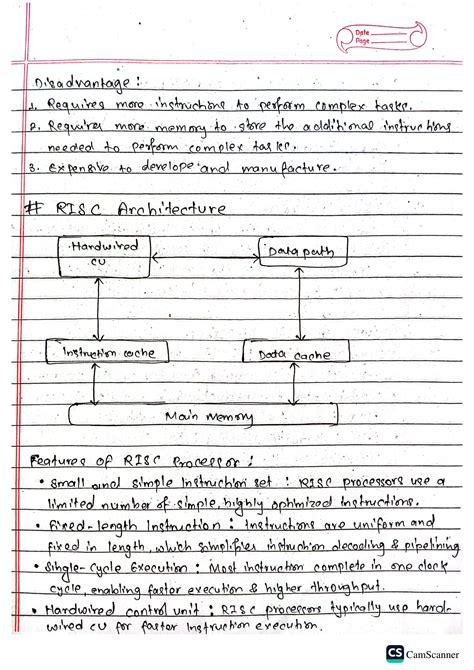 Date
Page
Disadvantage :
1. Requires more instructions to perform complex tasks.
2. Requires more memory to store the additional instructions
needed to perform complex tasks.
3. Expensive to develope and manufacture.
# RISC Architecture
Hardwired
CU
Data path
Instruction cache
Data cache
Main Memory
Features of RISC Processor :
• Small and simple Instruction set : RISC processors use a
limited number of simple, highly optimized instructions.
• Fixed-length Instruction : Instructions are uniform and
fixed in length, which simplifies instruction decoding & pipelining
• Single-Cycle Execution : Most instruction complete in one clock
cycle, enabling faster execution & higher throughput.
• Hardwired control unit : RISC processors typically use hard-
wired CU for faster instruction execution.
CS CamScanner